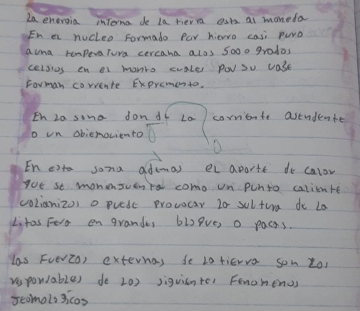 La energia interna de la tierra esta al moneda
En el nucleo formado por hierro casi puro
a una temperatura cercana a los 5000 grados
celsius en el manto cuales por su vase
forman corriente Expremento.
En la sona donde La corriente asendente
o un abiemociento
En esta sona ademas el aporte de calor
que se como un punto caliente
volianizos o puede provocar la sultura de La
Litosfera en grandes bloques o pacas.
Las fuerzas externas de La tierra son Los
reponsables de Los siguientes fenomenos